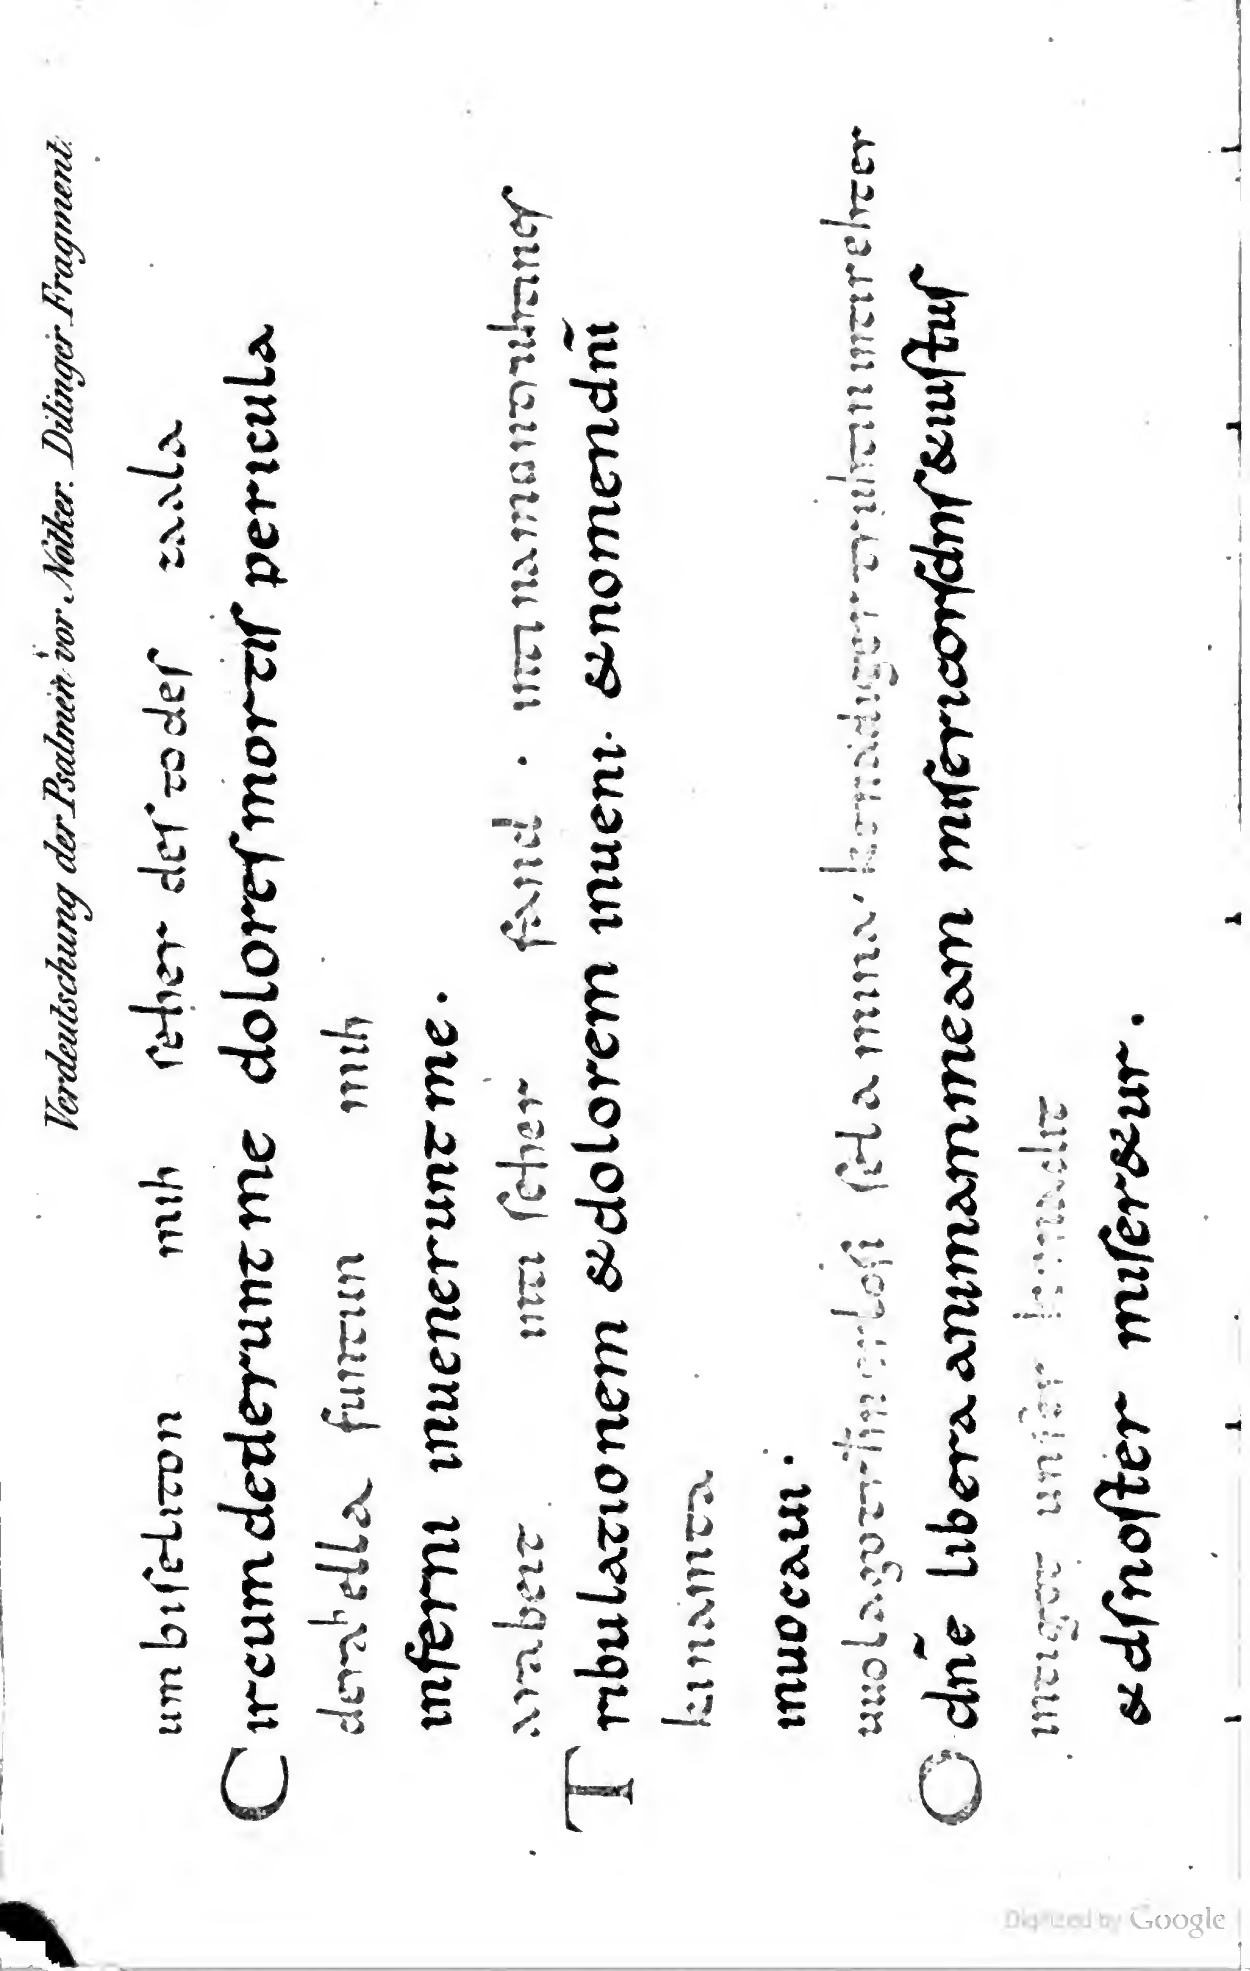 Verdeutschung der Psalmen vor Notker. Dilinger Fragment.
umbiſeliton mih ſeher deſ todeſ zaala
Circumdederunt me doloreſ mortiſ pericula
dera hella funtun mih
inferni inuenerunt me.
arabeit inti ſeher fand . inti namon truhtineſ
Tribulationem & dolorem inueni. & nomen dñi
kinamta
inuocaui.
uuolago truhtin erloſi ſela mina, kenadiger truhtin inti rehter
O dñe libera animam meam miſericorſ dnſ & iuſtuſ
inti got unſer
& dſ noſter miſer&ur.
Digitized by Google